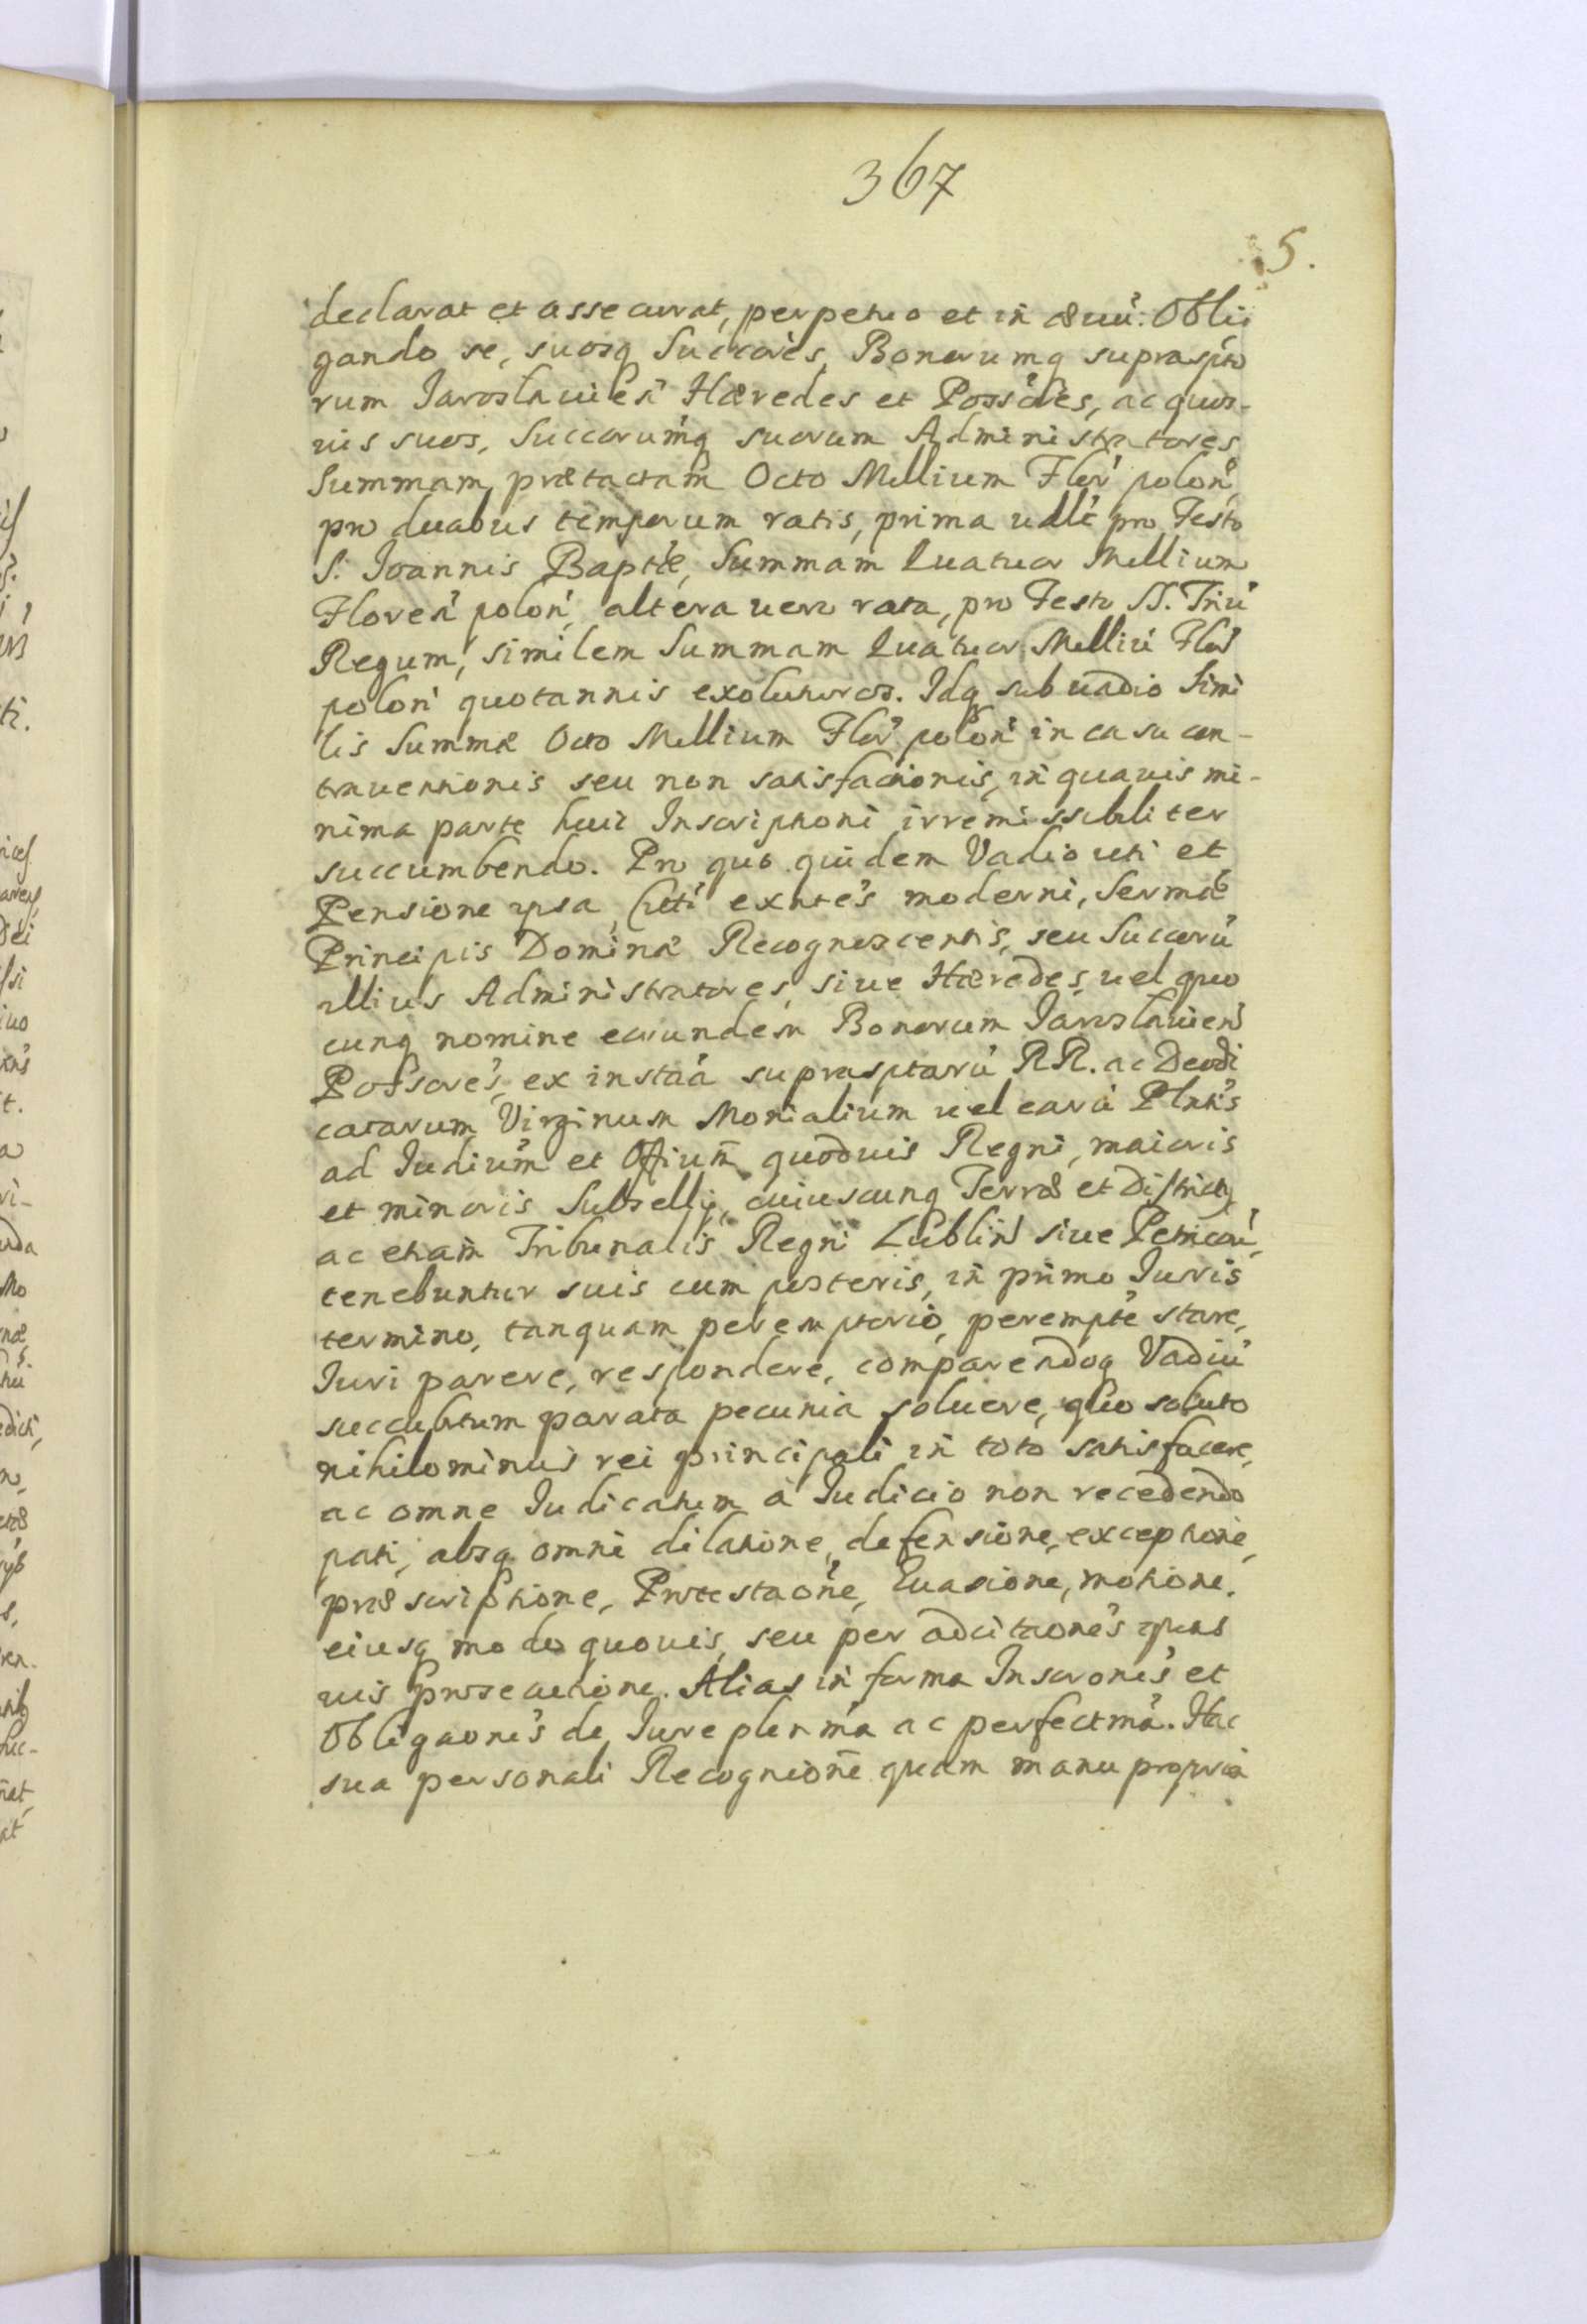 367
5.
declarat et assecurat, perpetuo et in æuu: Obli
gando se, suosq Succores, Bonorumq supraspto
rum Jaroslauien Hæredes et Possores, ac quos-
uis suos, Succorumq suorum Administratores
Summam prætactam Octo Millium Flor polon
pro duabus temporum ratis, prima udlt pro Festo
S. Joannis Baptæ, Summam Quatuor Millium
Floren polon, altera uero rata, pro Festo SS. Triu
Regum, similem Summam Quatuor Milliu Flor
polon quotannis exoluturos. Idq sub uadio simi
lis Summæ Octo Millium Flor polon in casu con-
trauentionis seu non satisfactionis, in quauis mi-
nima parte huic Inscriptioni irremissibiliter
succumbendo. Pro quo quidem Vadio uti et
Pensione ipsa, exntes moderni, Sermæ
Principis Dominæ Recognoscentis, seu Succoru
illius Administratores, siue Hæredes, uel quo
cunq nomine eorundem Bonorum Jaroslauien
Possores, ex instaa suprasptaru RR. ac Deodi
catarum Virginum Monialium uel earu Plntis
ad Judium et Offium quoduis Regni, maioris
et minoris Subsellij, cuiuscunq Terræ et Districtq
ac etiam Tribunalis Regni Lublin siue Petricou,
tenebuntur suis cum posteris, in primo Juris
termino, tanquam peremptorio, perempte stare,
Juri parere, respondere, comparendoq Vadiu
succubitum parata pecunia soluere, quo soluto
nihilominus rei principali in toto satisfacere,
ac omne Judicatum à Judicio non recedendo
pati, absq omni dilatione, defensione, exceptione,
præscriptione, Protestaone, Euasione, motione.
eiusq modo quouis, seu per adcitaones quas
uis prosecutione. Alias in forma Inscrones et
Obligaones de Jure plenma ac perfectma. Hac
sua personali Recognione quam manu propria